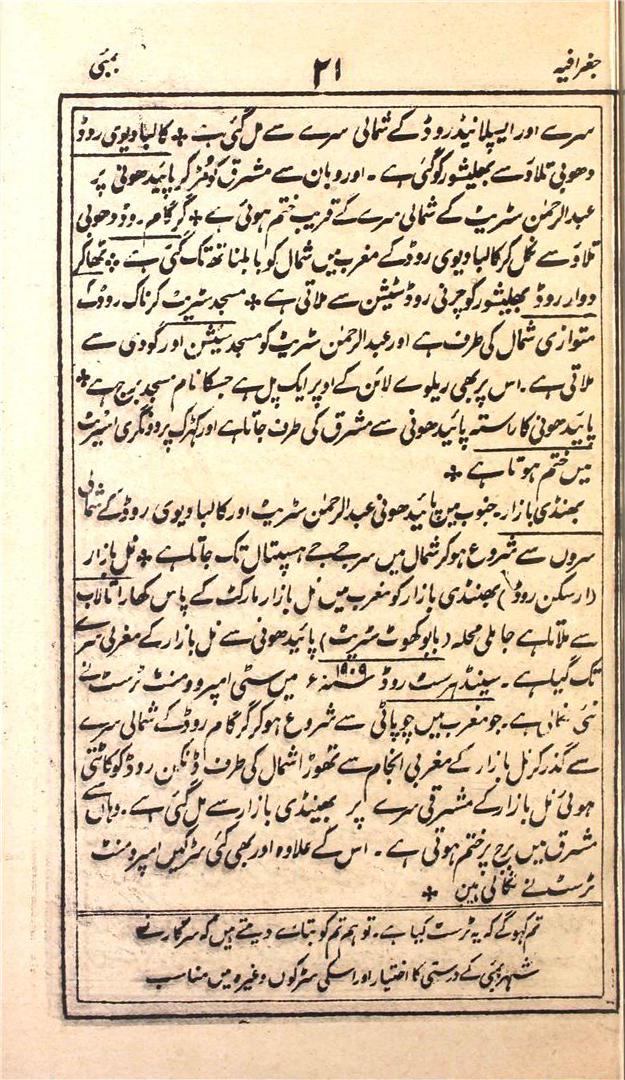 جغرافیہ ۲۱ بمبئی
سرے اور ایسپلانیڈ روڈ کے شمالی سرے سے مل گئی ہے * کالبا دیوی روڈ
دھوبی تلاؤ سے بھلیشور کو گئی ہے ۔ اور وہان سے مشرق کو مُڑ کر پائیدھونی پر
عبدالرحمٰن سٹریٹ کے شمالی سرے کے قریب ختم ہوئی ہے * گرگام روڈ دھوبی
تلاؤ سے نکل کر کالبا دیوی روڈ کے مغرب میں شمال کو بابلناتھ تک گئی ہے * ٹھاکر
دوار روڈ بھلیشور کو چرنی روڈ سٹیشن سے ملاتی ہے * مسجد سٹریٹ کرناک روڈ کے
متوازی شمال کی طرف ہے اور عبدالرحمٰن سٹریٹ کو مسجد سٹیشن اور گودی سے
ملاتی ہے ۔ اس پر بھی ریلوے لائن کے اوپر ایک پل ہے جسکا نام مسجد برج ہے *
پائیدھونی کا راستہ پائیدھونی سے مشرق کی طرف جاتا ہے اور کہڑک پر ڈونگری اسٹریٹ
میں ختم ہوتا ہے *
بھنڈی بازار ۔ جنوب مین پائیدھونی عبدالرحمٰن سٹریٹ اور کالبا دیوی روڈ کے شمالی
سروں سے شروع ہو کر شمال میں سر جے جے ہسپتال تک جاتا ہے * نل بازار
(ارسکن روڈ) بھنڈی بازار کو مغرب میں نل بازار مارکٹ کے پاس کھارا تالاب
سے ملاتا ہے جاملی محلہ (بابو کھوٹ سٹریٹ) پائیدھونی سے نل بازار کے مغربی سرے
تک گیا ہے ۔ سینڈہرسٹ روڈ ۱۹۰۹ء میں سٹی امپروومنٹ ٹرسٹ نے
نئی نکالی ہے ۔ جو مغرب میں چوپاٹی سے شروع ہو کر گرگام روڈ کے شمالی سرے
سے گذر کر نل بازار کے مغربی انجام سے تھوڑا شمال کی طرف ڈنکن روڈ کو کاٹتی
ہوئی نل بازار کے مشرقی سرے پر بھینڈی بازار سے مل گئی ہے ۔ وہاں سے
مشرق میں برج پر ختم ہوتی ہے ۔ اس کے علاوہ اور بھی کئی سڑکیں امپروومنٹ
ٹرسٹ نے نکالی ہین *
تم کہو گے کہ یہ ٹرسٹ کیا ہے ۔ تو ہم تم کو بتائے دیتے ہیں کہ سرکار نے
شہر بمبئی کے درستی کا اختیار اور اسکی سڑکوں وغیرہ میں مناسب